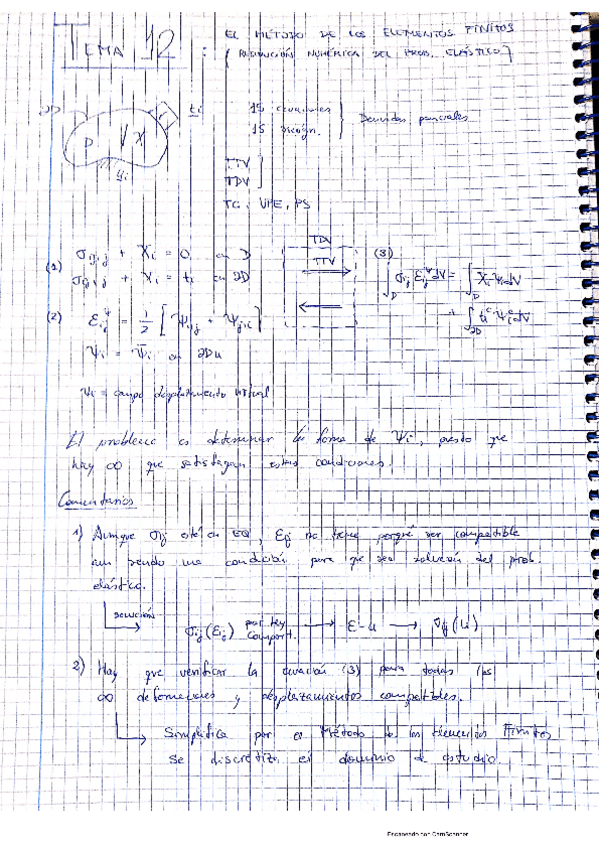 TEMA 12 : EL MÉTODO DE LOS ELEMENTOS FINITOS
(RESOLUCIÓN NUMÉRICA DEL PROB. ELÁSTICO)
∂D D Xi ti
ui
15 ecuaciones
15 incógn.
Derivadas parciales
TTV
TDV
TC, VPE, PS
(1) σij,j + Xi = 0 en D
+ Xi = ti en ∂D
(2) εij^ψ = 1/2 [ψi,j + ψj,i]
ψi = ψ̄i en ∂Du
TDV
TTV
(3) ∫D σij εij^ψ dV = ∫D Xi ψi dV
+ ∫∂D ti^c ψi^c dV
ψi = campo desplazamiento virtual
El problema es determinar la forma de ψi, puesto que
hay ∞ que satisfagan estas condiciones.
Comentarios
1) Aunque σij esté en EQ, εij no tiene porqué ser compatible
aun siendo una condición para que sea solución del prob.
elástico.
solución
σij(εij) por ley Comport. → ε-u → σij(u)
2) Hay que verificar la ecuación (3) para todas las
∞ deformaciones y desplazamientos compatibles.
Simplifica por el Método de los Elementos Finitos
se discretiza el dominio de estudio
Escaneado con CamScanner